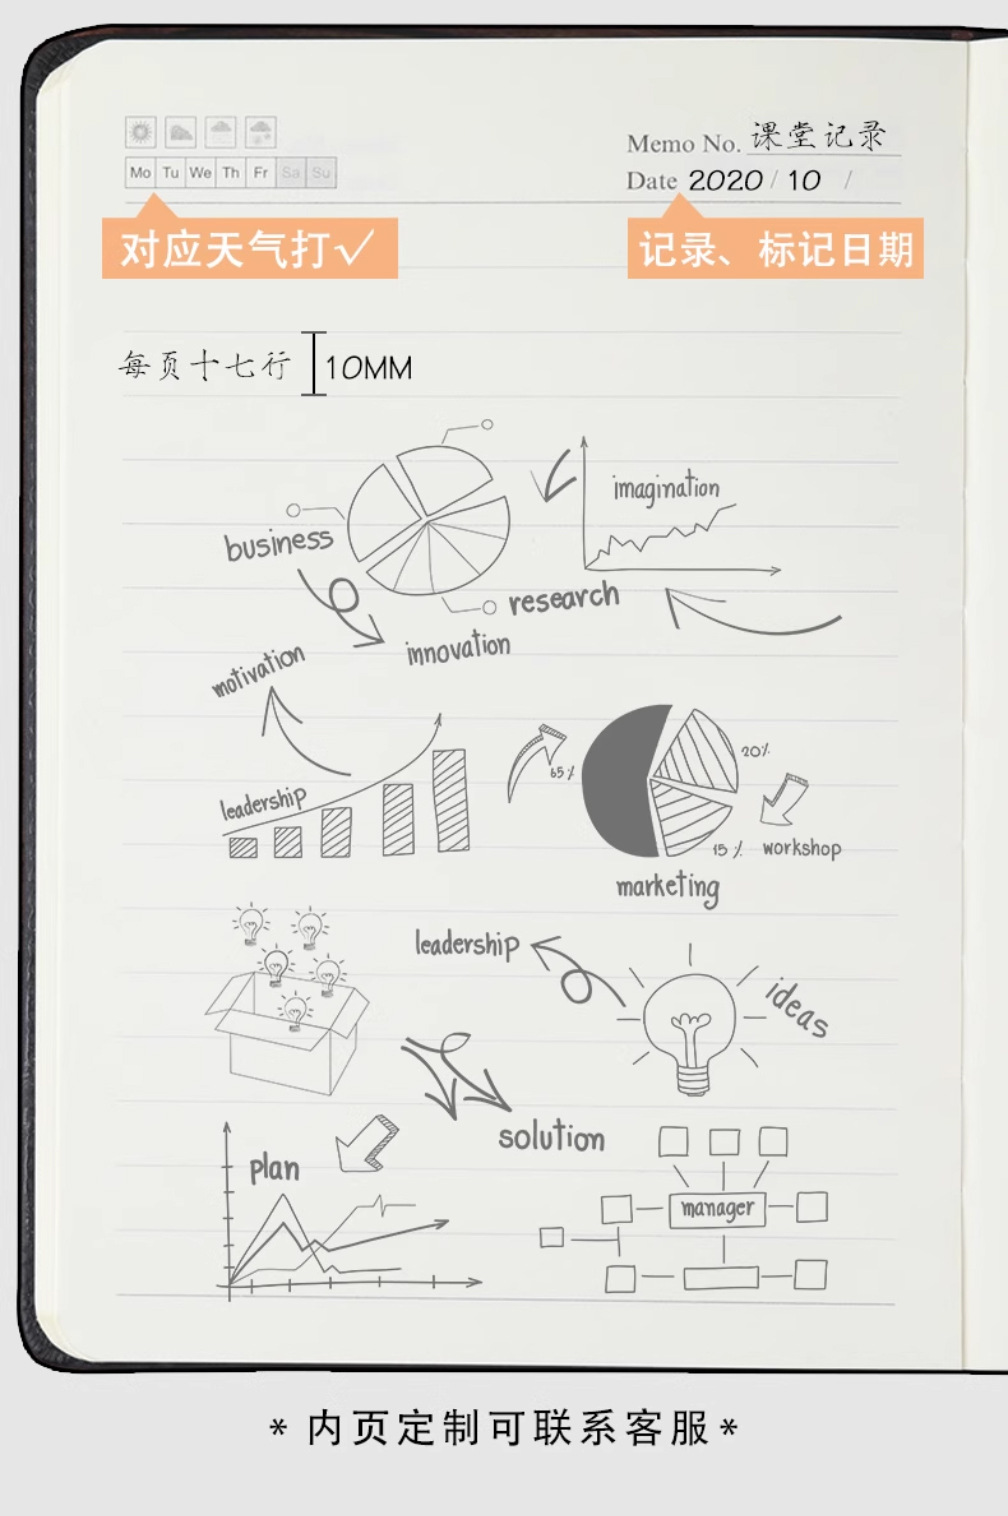 Memo No. 课堂记录
Mo Tu We Th Fr Sa Su
Date 2020 / 10 /
对应天气打✓
记录、标记日期
每页十七行 10MM
imagination
business
research
innovation
motivation
20%
65%
leadership
15% workshop
marketing
leadership
ideas
solution
plan
manager
*内页定制可联系客服*